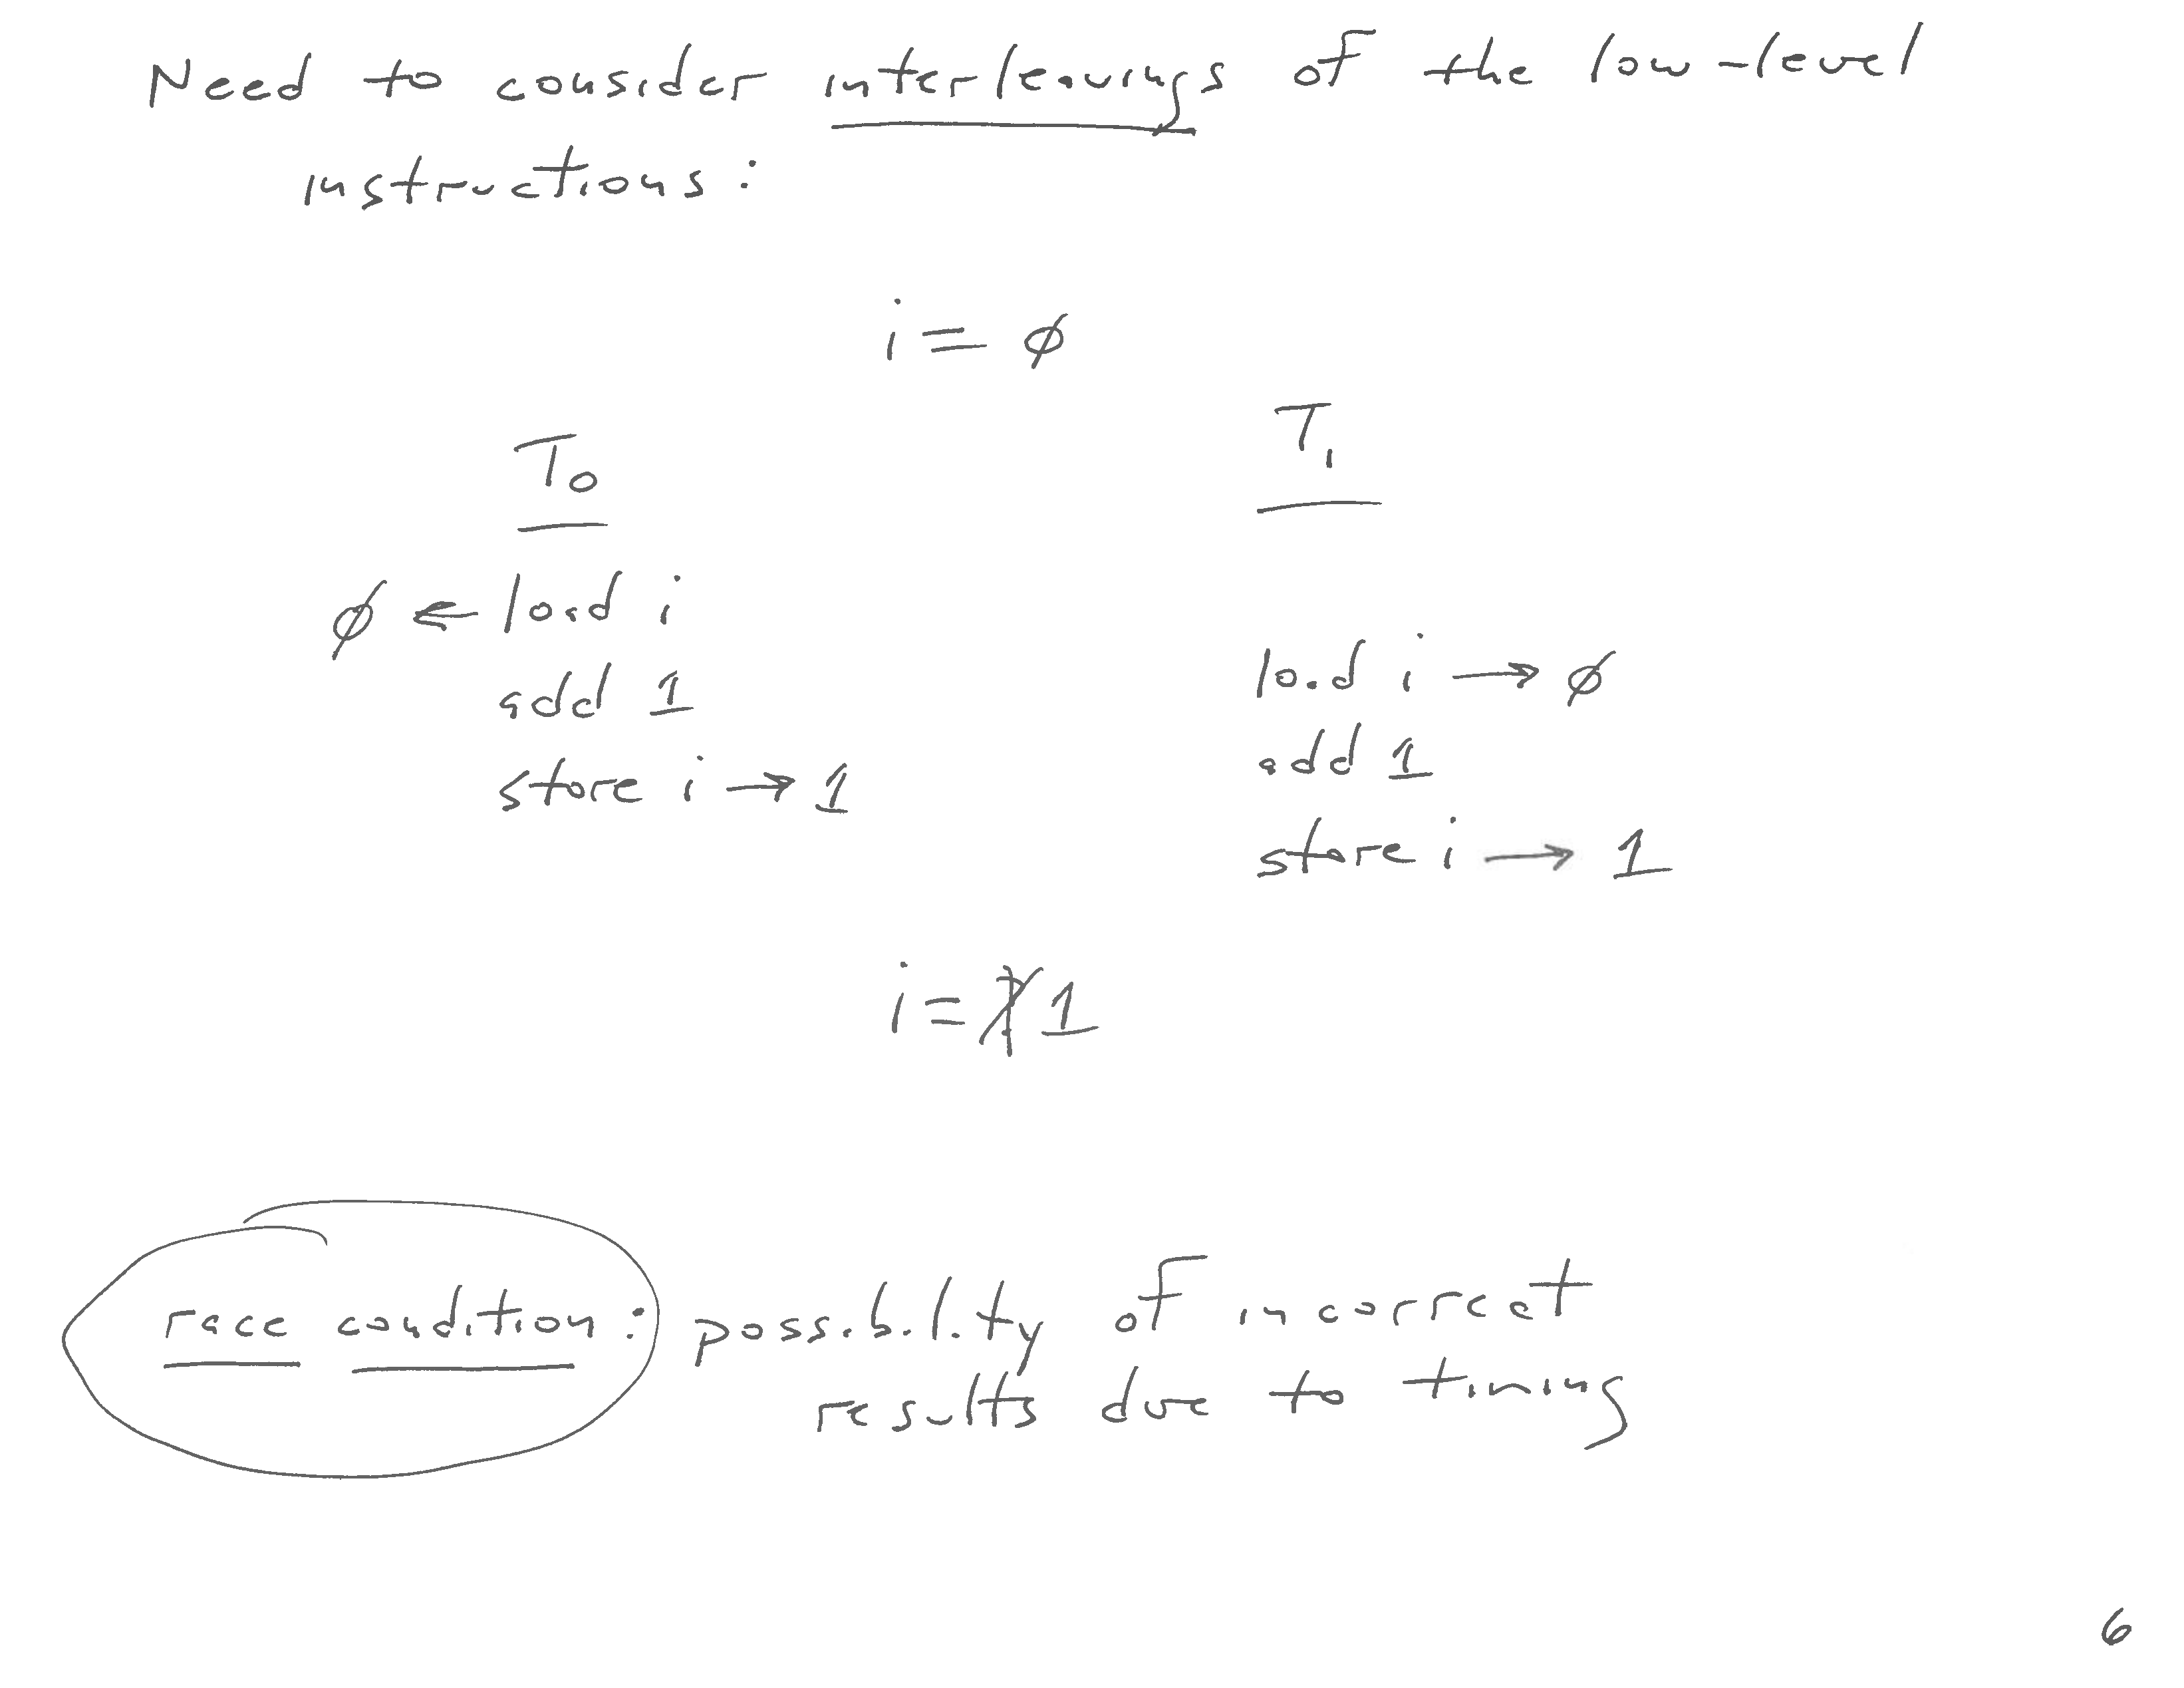 Need to consider interleavings of the low-level
instructions:
i = 0
T0
T1
0 ← load i
load i → 0
add 1
add 1
store i → 1
store i → 1
i = 1
race condition: possibility of incorrect
results due to timing
6